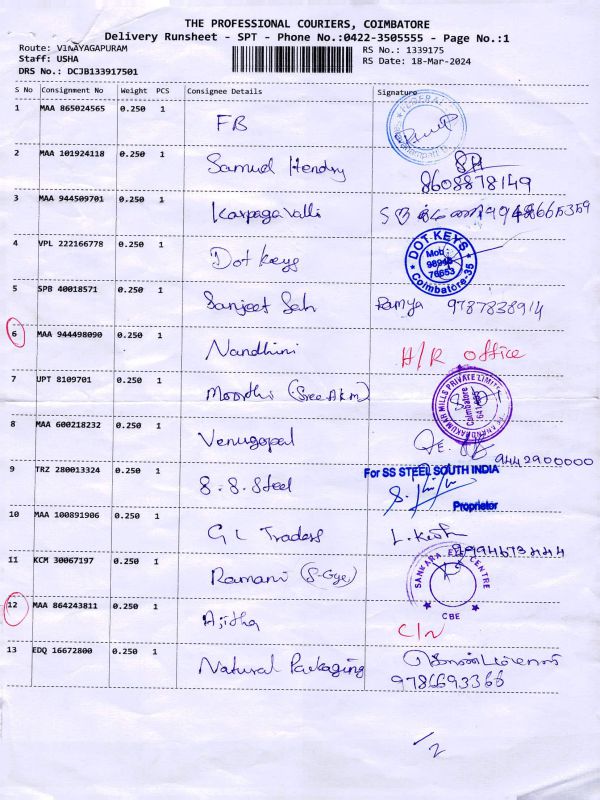 THE PROFESSIONAL COURIERS, COIMBATORE
Delivery Runsheet - SPT - Phone No.:0422-3505555 - Page No.:1
Route: VINAYAGAPURAM
RS No.: 1339175
Staff: USHA
RS Date: 18-Mar-2024
DRS No.: DCJB133917501
S No Consignment No Weight PCS Consignee Details Signature
1 MAA 865024565 0.250 1 FB
2 MAA 101924118 0.250 1 Samuel Hendry
8608878149
3 MAA 944509701 0.250 1 Karpagavalli
4 VPL 222166778 0.250 1 Dot Keys DOT KEYS Mob Coimbatore-35
5 SPB 40018571 0.250 1 Sanjeet Sah Ramya 9787838914
6 MAA 944498090 0.250 1 Nandhini H/R office
7 UPT 8109701 0.250 1 Moorthi (Sree Akm) MILLS PRIVATE LIMITED Coimbatore
8 MAA 600218232 0.250 1 Venugopal
9442900000
9 TRZ 280013324 0.250 1 S.S. Steel For SS STEEL SOUTH INDIA
Proprietor
10 MAA 100891906 0.250 1 GL Traders
11 KCM 30067197 0.250 1 Ramani (S-Gye) SANKARA EYE CENTRE CBE
12 MAA 864243811 0.250 1 Ajitha C/N
13 EDQ 16672800 0.250 1 Natural Packaging
9786693366
1/2